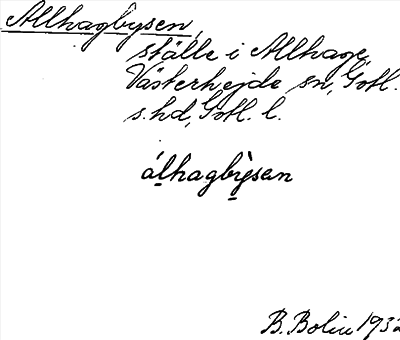 Allhagbysen,
ställe i Allhage,
Västerhejde sn, Gotl.
s. hd, Gotl. l.
álhagbỳsen
B. Bolin 1932